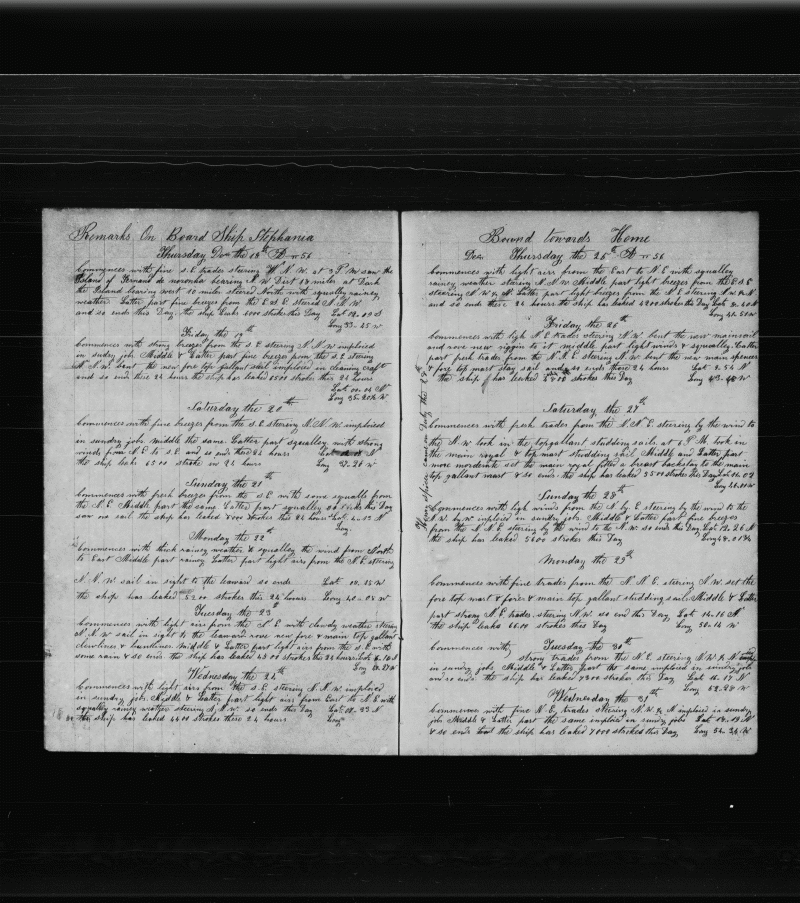 Remarks On Board Ship Stephania
Thursday Dec the 18th D 56
Commences with fine S.E trades steering W.N.W. at 3 P.M saw the
Island of Fernand de noronha bearing N.W Dist 18 miles at Dark
the Island bearing west 10 miles steered North with squalley rainey
weather Latter part fine breezes from the E.S.E. steered N.N.W
and so ends this Day. the ship Leaks 6000 strokes this Day Lat 09 S
Long 33-45 W
Friday the 19th
Commences with strong breezes from the S.E steering N.N.W imploied
in sudry job Middle & Latter part five breezes from the S.E steering
N.N.W bent the new fore top gallant sail imploied in cleaning craft
and so end these 24 hours the ship has leaked 6500 strokes this 24 hours
Lat 00-04 N
Long 35. W
Saturday the 20th
Commences with fine breezes from the S.E steering N.N.W imploied
in sundry job. middle the same. Latter part squalley with strong
winds from N.E to S.E and so end these 24 hours Lat N
the ship leaks 6500 stroke in 24 hours Long 37-26 W
Sunday the 21th
Commences with fresh breezes from the S.E with some squalls from
the N.E Middle part the same. Latter part squalley this Day
saw no sail the ship has leaked strokes this 24 hours Lat N
Long
Monday the 22th
Commences with thick rainey weather & squalley the wind from North
to East Middle part rainey Latter part light airs from the N.E steering
N.N.W sail in sight to the leaward so ends Lat
the ship has leaked 5200 strokes this 24 hours Long 40-05 W
Tuesday the 23th
Commences with light airs from the N.E with clowdy weather steering
N.N.W sail in sight to the leaward rove new fore & main top gallant
clewlines & buntlines Middle & Latter part light airs from the S.E with
some rain & so ends the ship has leaked 4300 strokes this 24 hours Lat N
Long W
Wednesday the 24th
Commences with light airs from the S.E steering N.N.W imploied
in sundry job. Middle & Latter part light airs from East to N.E with
squalley rainey weather steering N.N.W. so ends this Day Lat 08-33 N
the ship has leaked 4400 strokes these 24 hours Long
Bownd towards Home
Dec. Thursday the 25th D 56
Commences with light airs from the East to N.E with squalley
rainey weather steering N.N.W Middle part light breezes from the E.S.E
steering N.W & N. Latter part light breezes from the N.E steering N.W & N
and so ends these 24 hours the ship has leaked 4200 strokes this Day Lat N
Long 41-50 W
Friday the 26th
Commences with ligh N.E trades steering N.W. bent the new mainsail
and rove new riggin to it middle part light winds & squalley Latter
part fresh trades from the N.N.E steering N.W. bent the new main spencer
& fore top mast stay sail and so ends these 24 hours Lat 9.54 N
the ship has leaked strokes this Day Long 43- W
Saturday the 27th
Commences with fresh trades from the N.N.E steering by the wind to
the N.W. took in the topgallant studding sails. at 6 P.M. took in
the main royal & top mast studding sail Middle and Latter part
more morderate set the main royal fitted a breast backstay to the main
top gallant mast & so ends the ship has leaked 3500 strokes this Day Lat
Long W
Sunday the 28th
Commences with ligh winds from the N by E steering by the wind to the
N.W. by W imploied in sundry job. Middle & Latter part fine breezes
from the N.N.E steering by the wind to the N.W. so ends this Day Lat 12.26 N
the ship has leaked 5600 strokes this Day Long 48.01 W
Monday the 29th
Commences with fine trades from the N.N.E. steering N.W. set the
fore top mast & fore & main top gallant studding sails Middle & Latter
part strong N.E trades steering N.W. so end this Day, Lat 14-16 N
the ship leaks 6600 strokes this Day Long 50-14 W
Tuesday the 30th
Commences with strong trades from the N.E. steering N.W. & N.
in sundry job. Middle & Latter part the same imploied in sundry job
and so ends the ship has leaked 7300 strokes this Day Lat 16-17 N
Long 52-28 W
Wednesday the 31th
Commences with fine N.E. trades steering N.W. & N imploied in sundry
job Middle & Latter part the same imploied in sundry jobs Lat 18-18 N
& so ends the ship has leaked 7000 strokes this Day Long 54-34 W